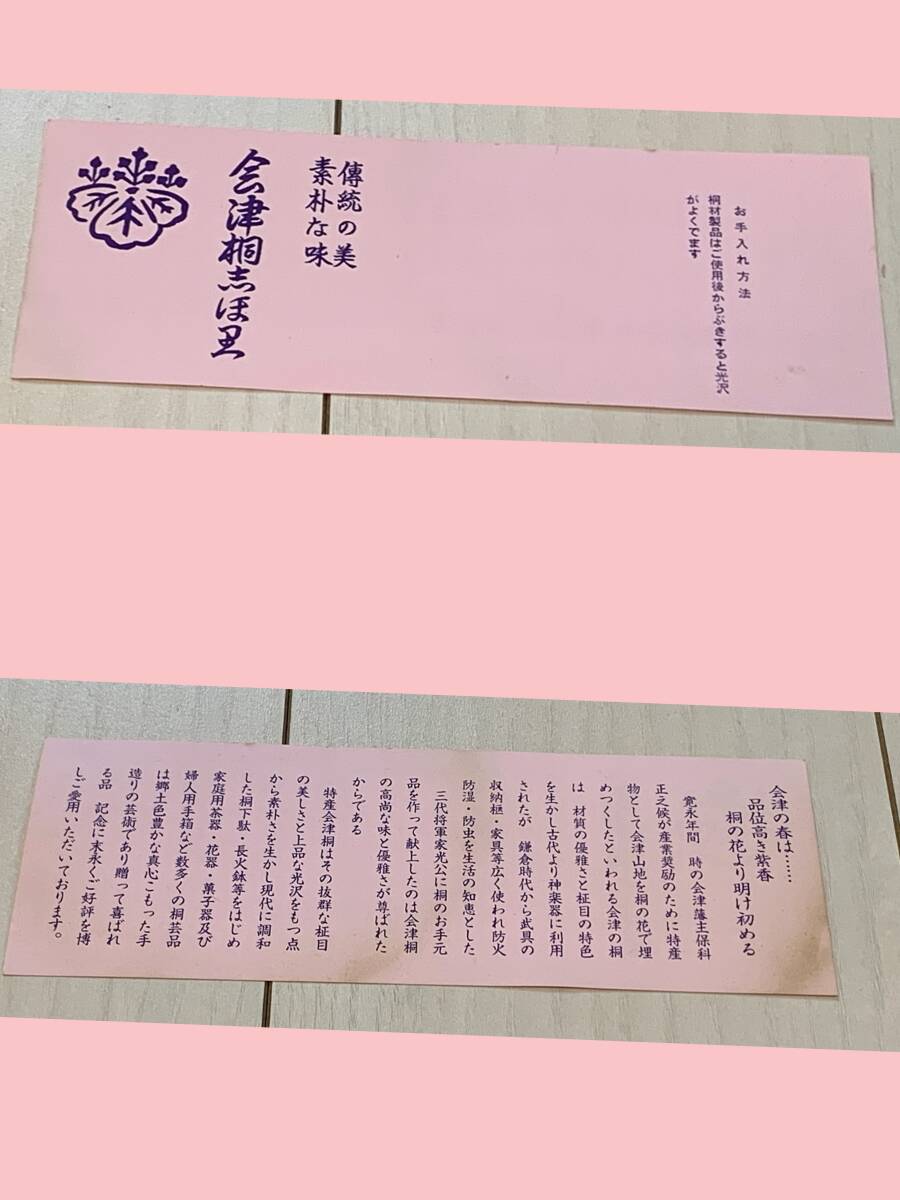 お手入れ方法
桐材製品はご使用後からぶきすると光沢
がよくでます
傳統の美
素朴な味
会津桐志ほ里
会津の春は……
品位高き紫香
桐の花より明け初める
寛永年間　時の会津藩主保科
正之候が産業奨励のために特産
物として会津山地を桐の花で埋
めつくしたといわれる会津の桐
は　材質の優雅さと柾目の特色
を生かし古代より神楽器に利用
されたが　鎌倉時代から武具の
収納櫃・家具等広く使われ防火
防湿・防虫を生活の知恵とした
三代将軍家光公に桐のお手元
品を作って献上したのは会津桐
の高尚な味と優雅さが尊ばれた
からである
特産会津桐はその抜群な柾目
の美しさと上品な光沢をもつ点
から素朴さを生かし現代に調和
した桐下駄・長火鉢等をはじめ
家庭用茶器・花器・菓子器及び
婦人用手箱など数多くの桐芸品
は郷土色豊かな真心こもった手
造りの芸術であり贈って喜ばれ
る品　記念に末永くご好評を博
しご愛用いただいております。